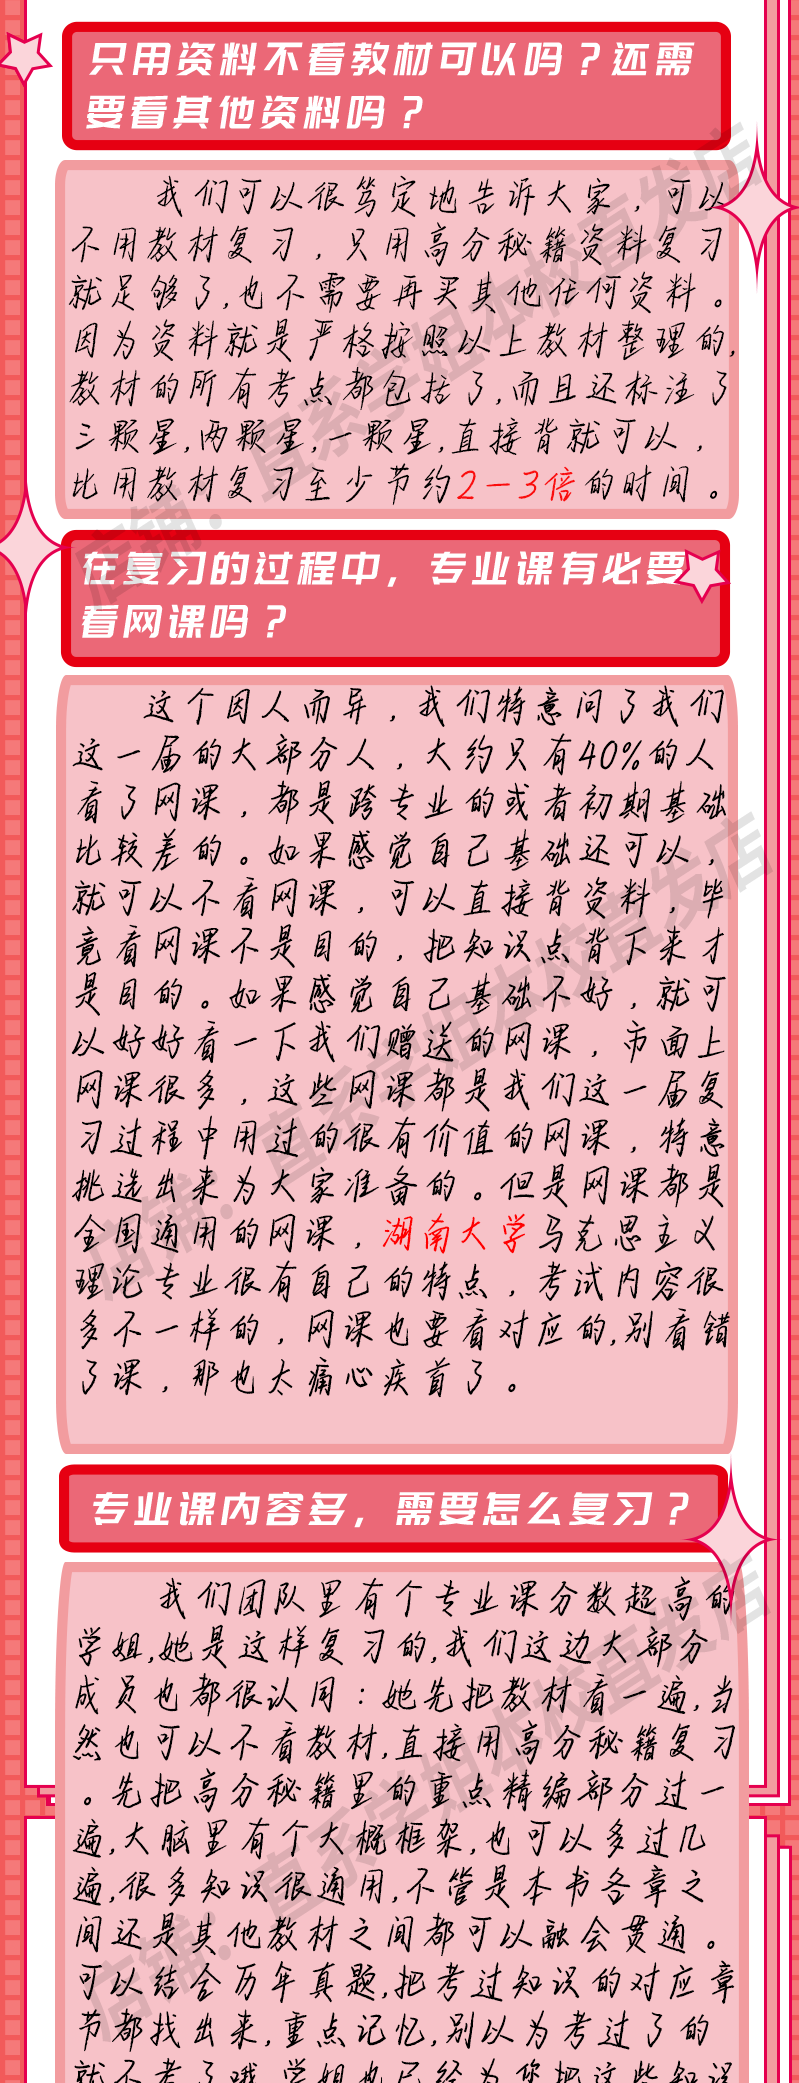 只用资料不看教材可以吗？还需
要看其他资料吗？
我们可以很笃定地告诉大家，可以
不用教材复习，只用高分秘籍资料复习
就足够了,也不需要再买其他任何资料。
因为资料就是严格按照以上教材整理的,
教材的所有考点都包括了,而且还标注了
三颗星,两颗星,一颗星,直接背就可以，
比用教材复习至少节约2-3倍的时间。
在复习的过程中，专业课有必要
看网课吗？
这个因人而异，我们特意问了我们
这一届的大部分人，大约只有40%的人
看了网课，都是跨专业的或者初期基础
比较差的。如果感觉自己基础还可以，
就可以不看网课，可以直接背资料，毕
竟看网课不是目的，把知识点背下来才
是目的。如果感觉自己基础不好，就可
以好好看一下我们赠送的网课，市面上
网课很多，这些网课都是我们这一届复
习过程中用过的很有价值的网课，特意
挑选出来为大家准备的。但是网课都是
全国通用的网课，湖南大学马克思主义
理论专业很有自己的特点，考试内容很
多不一样的，网课也要看对应的,别看错
了课，那也太痛心疾首了。
专业课内容多，需要怎么复习？
我们团队里有个专业课分数超高的
学姐,她是这样复习的,我们这边大部分
成员也都很认同：她先把教材看一遍,当
然也可以不看教材,直接用高分秘籍复习
。先把高分秘籍里的重点精编部分过一
遍,大脑里有个大概框架,也可以多过几
遍,很多知识很通用,不管是本书各章之
间还是其他教材之间都可以融会贯通。
可以结合历年真题,把考过知识的对应章
节都找出来,重点记忆,别以为考过了的
就不考了哦,学姐也已经为你把这些知识
店铺：直系学姐本校直发店
店铺：直系学姐本校直发店
店铺：直系学姐本校直发店